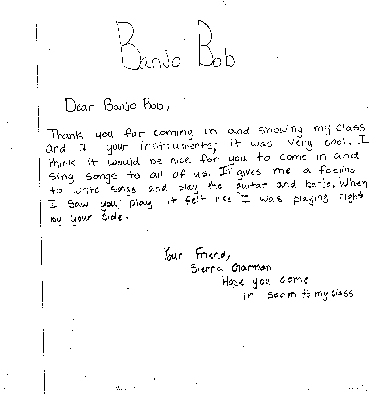 Banjo Bob
Dear Banjo Bob,
Thank you for coming in and showing my class
and I your instruments; it was very cool. I
think it would be nice for you to come in and
sing songs to all of us. It gives me a feeling
to write songs and play the guitar and banjo. When
I saw you play it felt like I was playing right
by your side.
Your Friend,
Sierra
Hope you come
in soon to my class